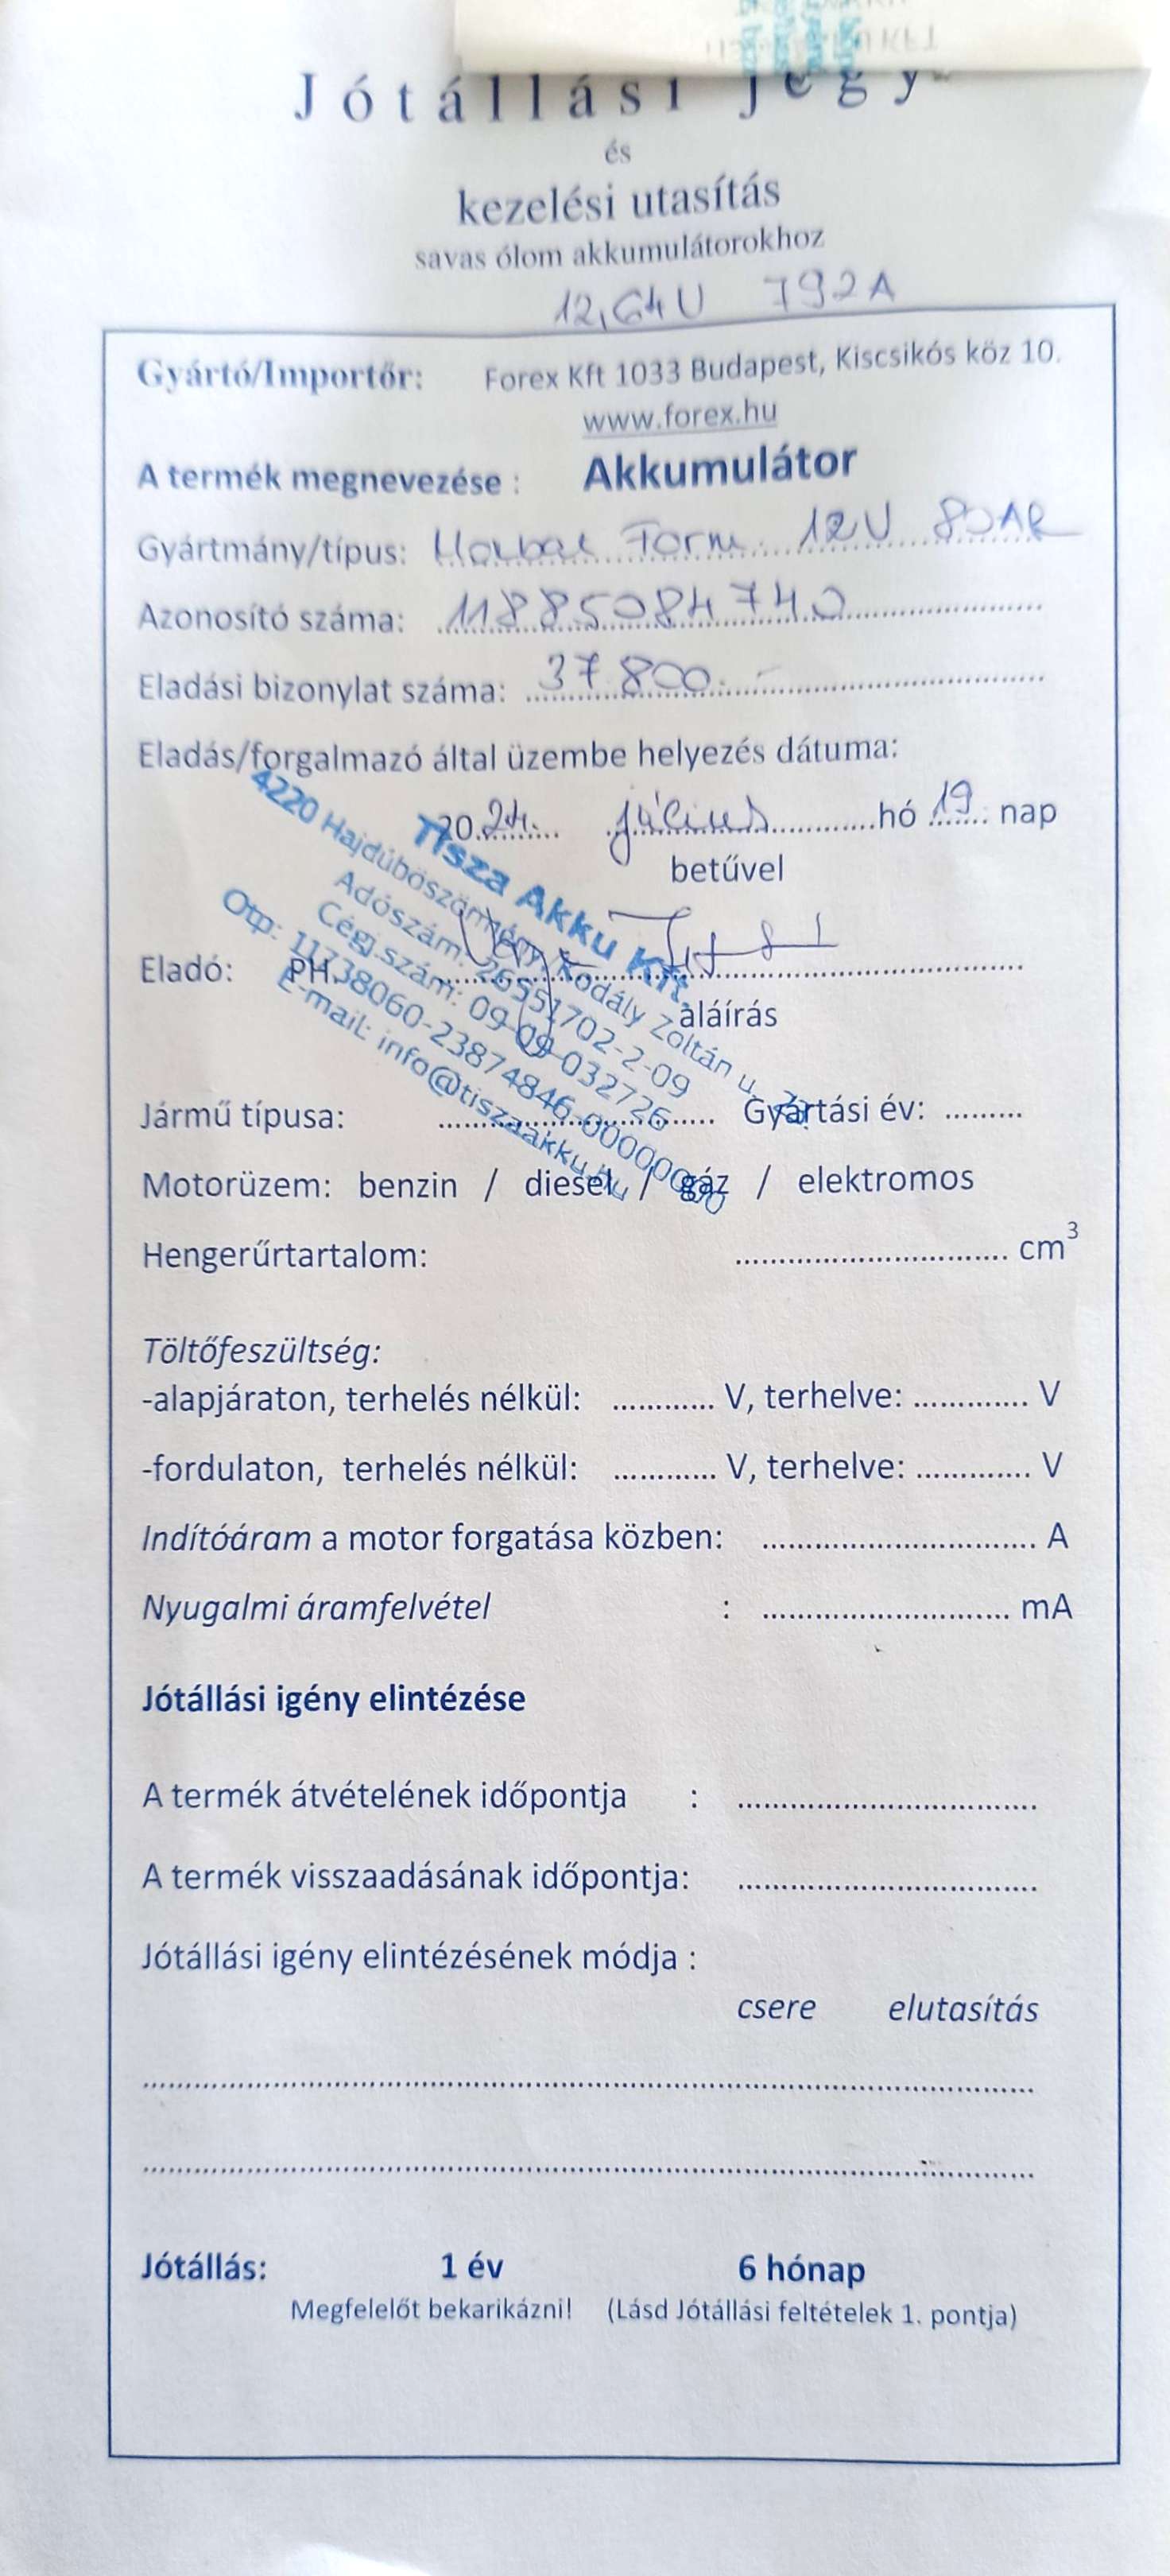 Jótállási jegy
és
kezelési utasítás
savas ólom akkumulátorokhoz
12,64V 792A
Gyártó/Importőr: Forex Kft 1033 Budapest, Kiscsikós köz 10.
www.forex.hu
A termék megnevezése : Akkumulátor
Gyártmány/típus: 12V 80AR
Azonosító száma: 11885084740
Eladási bizonylat száma: 37 800.-
Eladás/forgalmazó által üzembe helyezés dátuma:
2024. július hó 19. nap
betűvel
Tisza Akku Kft.
4220 Hajdúböszörmény, Kodály Zoltán u.
Adószám: 26551702-2-09
Cégj.szám: 09-09-032726
Otp: 11738060-23874846-00000000
E-mail: info@tiszaakku.hu
Eladó: PH.
aláírás
Jármű típusa: .................... Gyártási év: .........
Motorüzem: benzin / diesel / gáz / elektromos
Hengerűrtartalom: .................... cm³
Töltőfeszültség:
-alapjáraton, terhelés nélkül: ............ V, terhelve: ............. V
-fordulaton, terhelés nélkül: ............ V, terhelve: ............. V
Indítóáram a motor forgatása közben: .................... A
Nyugalmi áramfelvétel : .................... mA
Jótállási igény elintézése
A termék átvételének időpontja : ....................
A termék visszaadásának időpontja: ....................
Jótállási igény elintézésének módja :
csere elutasítás
Jótállás: 1 év 6 hónap
Megfelelőt bekarikázni! (Lásd Jótállási feltételek 1. pontja)